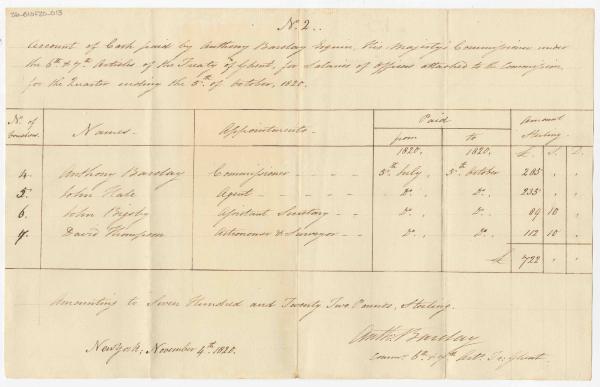 N. 2..
Account of Cash paid by Anthony Barclay Esquire, His Majesty's Commissioner under
the 6th & 7th Articles of the Treaty of Ghent, for Salaries of Officers attached to the Commission,
for the Quarter ending the 5th of October, 1820.
No. of Vouchers. Names. Appointments. Paid Amount Sterling.
from to
1820. 1820. £. S. D.
4. Anthony Barclay Commissioner 5th July 5th October 285
5. John Hale Agent Do. Do. 235
6. John Bigsby Assistant Secretary Do. Do. 89 10
7. David Thompson Astronomer & Surveyor Do. Do. 112 10
£ 722
Amounting to Seven Hundred and Twenty Two Pounds, Sterling.
New York; November 4th. 1820.
Anth: Barclay
Commr. 6th & 7th Arts. Ty. Ghent.